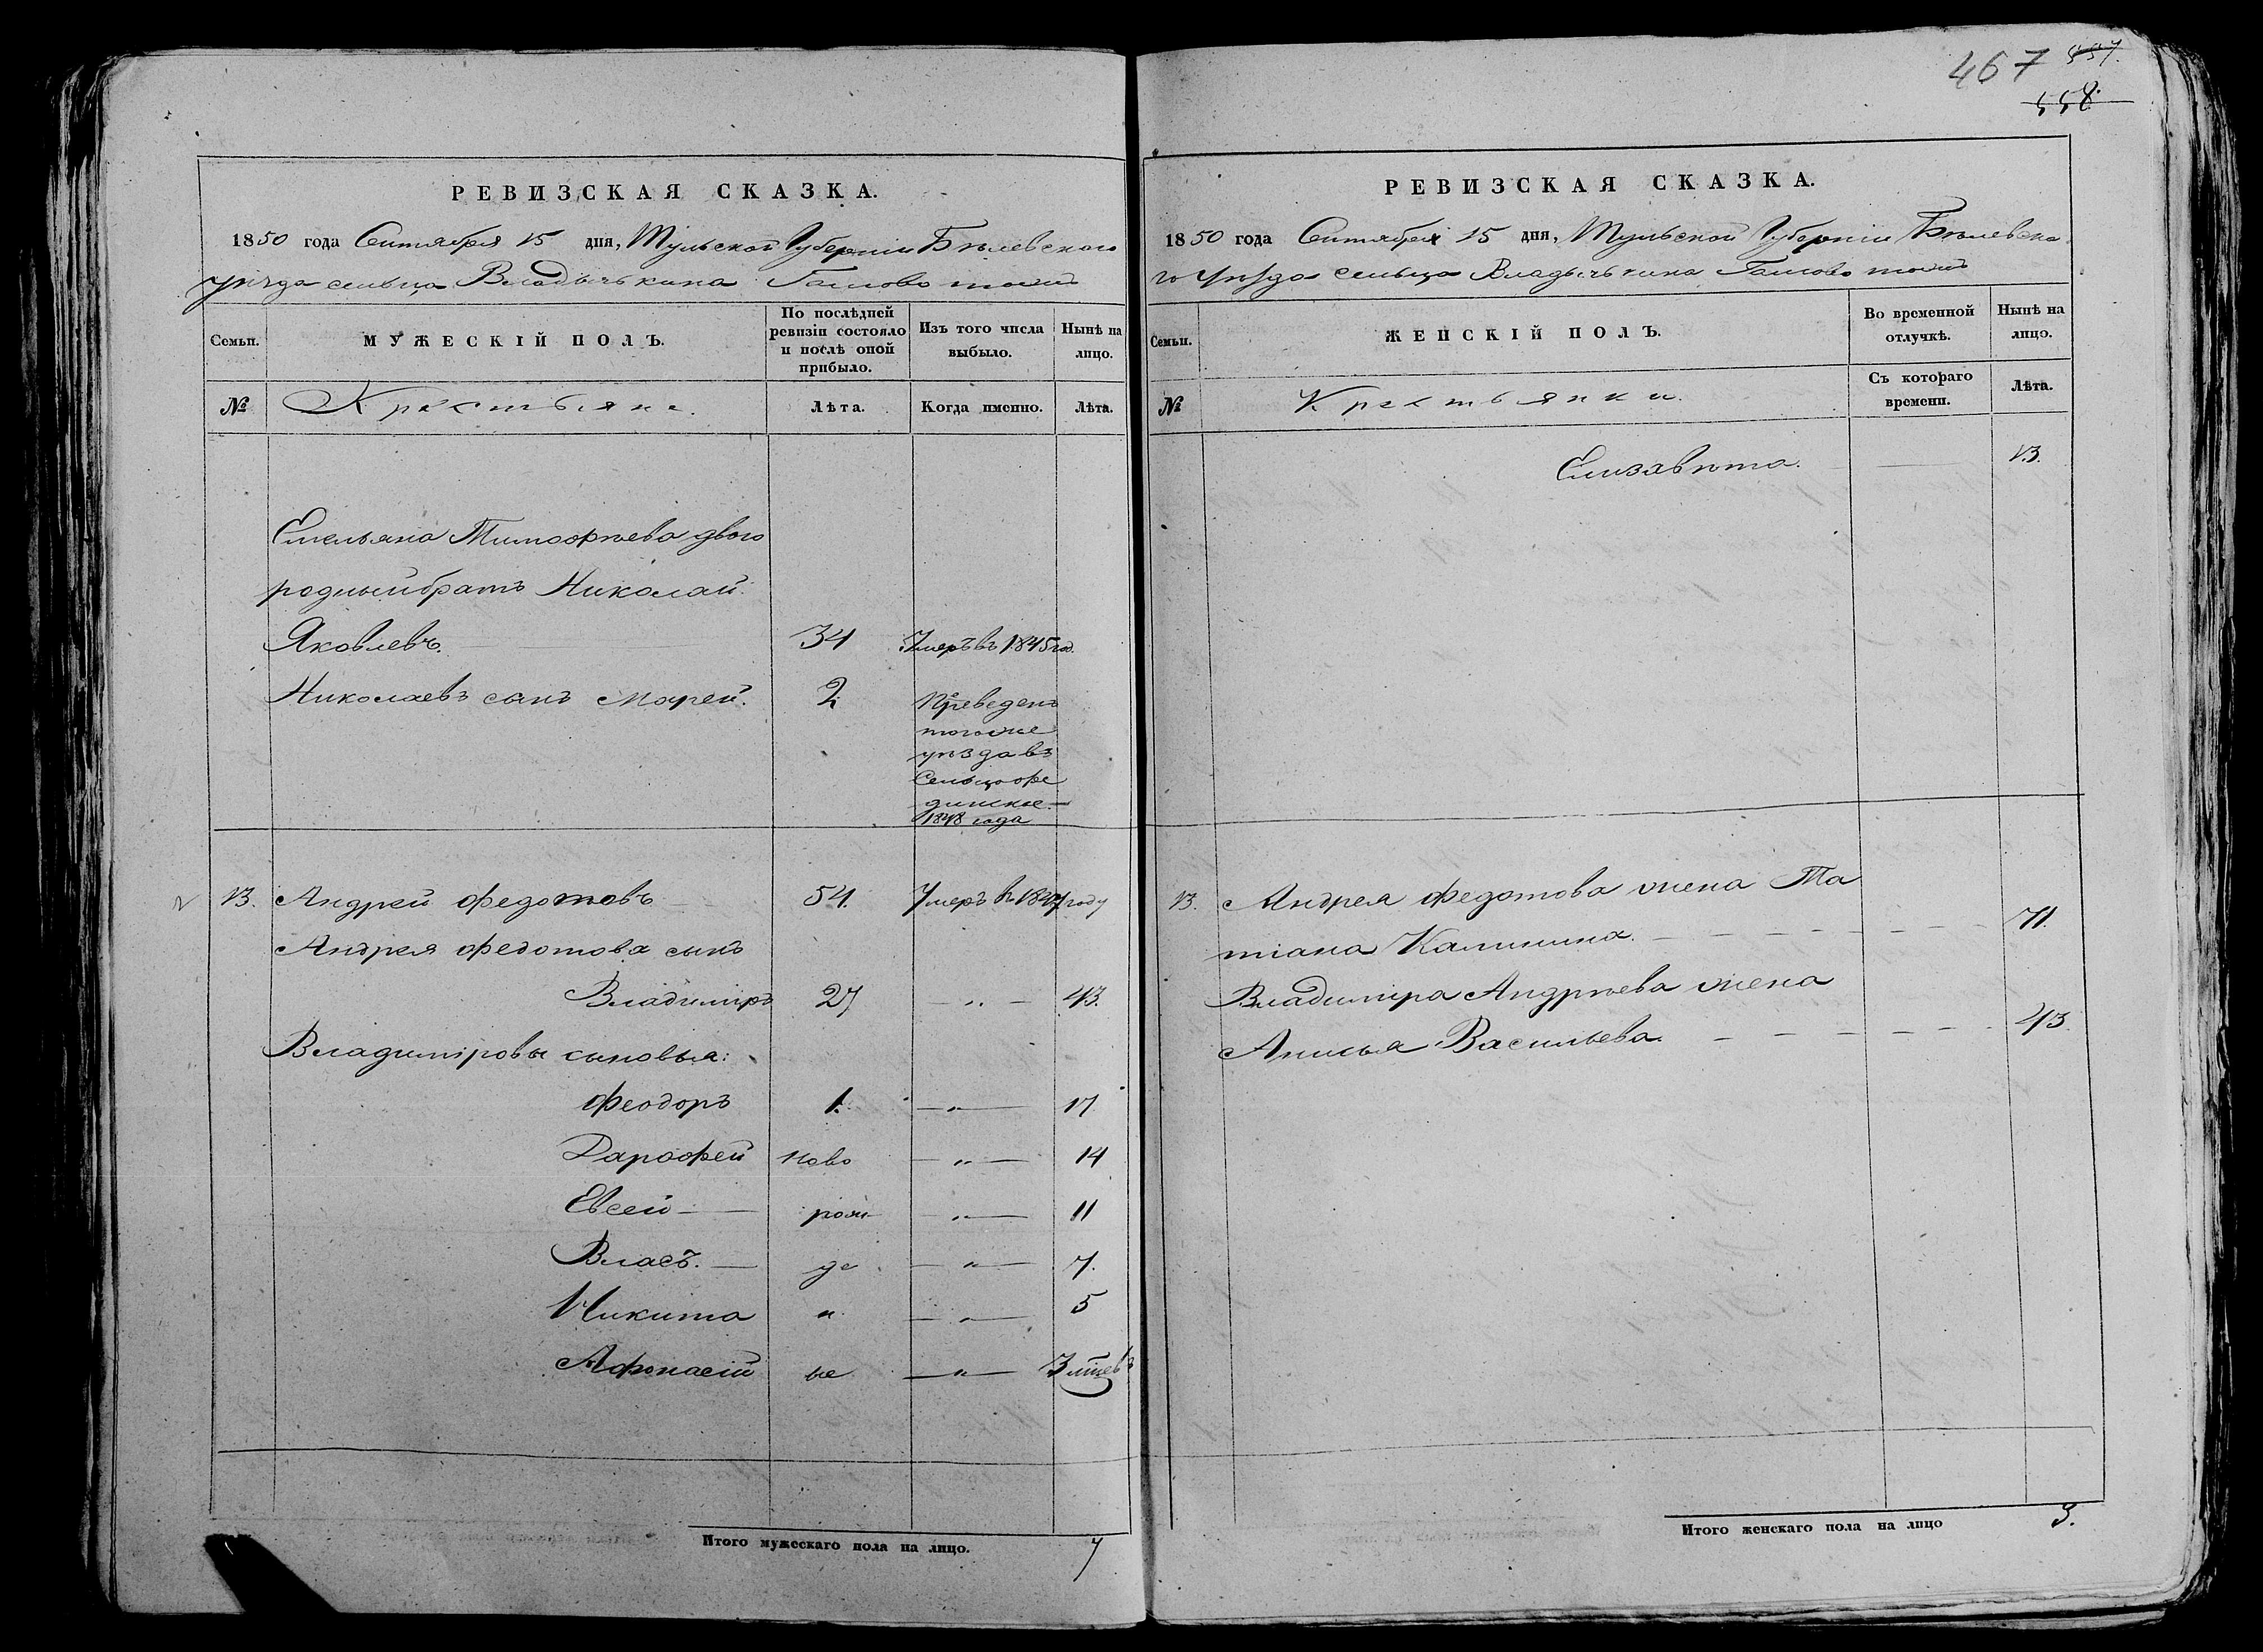 РЕВИЗСКАЯ СКАЗКА.
1850 года Сентября 15 дня, Тульской Губернiи Бѣлевского
уѣзда сельца Владычькина Гамово тожъ
Семьи. МУЖЕСКІЙ ПОЛЪ. По послѣдней ревизіи состояло и послѣ оной прибыло. Изъ того числа выбыло. Нынѣ на лицо.
№ Крестьяне. Лѣта. Когда именно. Лѣта.
Емельяна Тимофѣева двою
родный братъ Николай
Яковлевъ. 34 Умеръ въ 1845 год.
Николаевъ сынъ Марей. 2 Переведенъ
тогоже
уѣзда въ
Сельцо Фе
динское
1848 года
13. Андрей Федотовъ 54. Умеръ въ 1847 году
Андрея Федотова сынъ
Владимiръ 27 — „ — 43.
Владимiровы сыновья:
Феодоръ 1. — „ — 17
Дарофей ново — „ — 14
Евсей — рож — „ — 11
Власъ. — де — „ — 7.
Никита н — „ — 5
Афонасiй ые — „ — 3 лѣтъ
Итого мужескаго пола на лицо. 7
467 557.
558.
РЕВИЗСКАЯ СКАЗКА.
1850 года Сентября 15 дня, Тульской Губернiи Бѣлевска
го Уѣзда сельца Владычькина Гамово тожъ
Семьи. ЖЕНСКІЙ ПОЛЪ. Во временной отлучкѣ. Нынѣ на лицо.
№ Крестьянки. Съ котораго времени. Лѣта.
Елизавѣта. — 13.
13. Андрея Федотова жена Та
тiана Калинина. 71.
Владимiра Андрѣева жена
Анисья Васильева. 43
Итого женскаго пола на лицо 3.